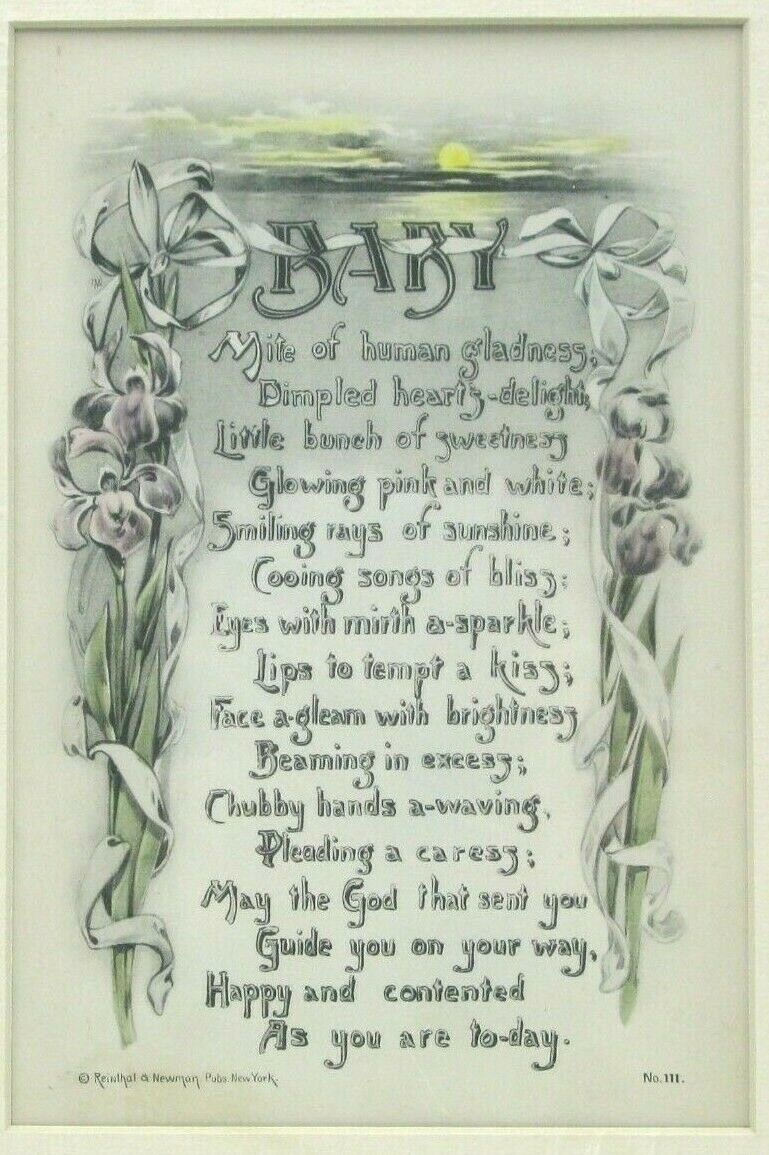 BABY
Mite of human gladness,
Dimpled heart's-delight,
Little bunch of sweetness
Glowing pink and white;
Smiling rays of sunshine;
Cooing songs of bliss;
Eyes with mirth a-sparkle;
Lips to tempt a kiss;
Face a-gleam with brightness
Beaming in excess;
Chubby hands a-waving,
Pleading a caress;
May the God that sent you
Guide you on your way,
Happy and contented
As you are to-day.
© Reinthal & Newman, Pubs. New York.
No. 111.